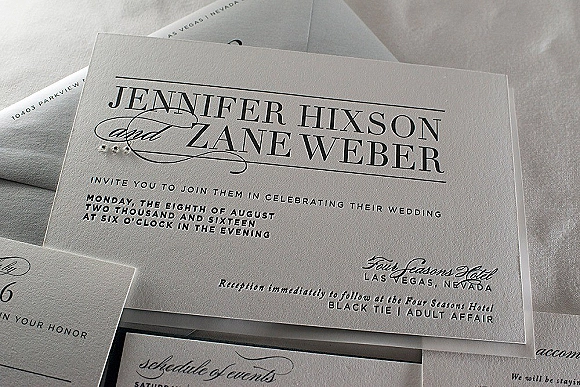 LAS VEGAS | NEVADA
10403 PARKVIEW
JENNIFER HIXSON
and ZANE WEBER
INVITE YOU TO JOIN THEM IN CELEBRATING THEIR WEDDING
MONDAY, THE EIGHTH OF AUGUST
TWO THOUSAND AND SIXTEEN
AT SIX O'CLOCK IN THE EVENING
Four Seasons Hotel
LAS VEGAS, NEVADA
Reception immediately to follow at the Four Seasons Hotel
BLACK TIE | ADULT AFFAIR
6
IN YOUR HONOR
schedule of events
accom
We will be staying